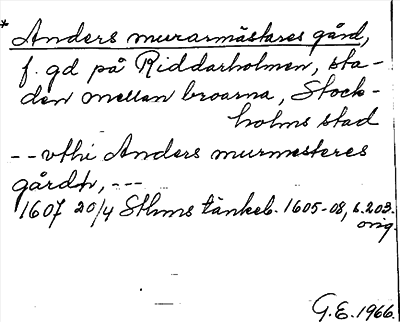 * Anders murarmästares gård,
f. gd på Riddarholmen, sta-
den mellan broarna, Stock-
holms stad
-- vthi Anders murmesteres
gårdh, ---
1607 20/4 Sthms tänkeb. 1605-08, s. 203.
orig.
G.E. 1966.